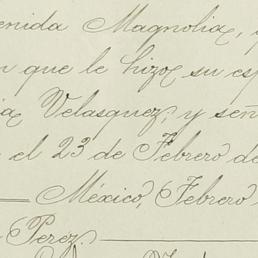 enida Magnolia, y
n que le hizo su esp
ia Velasquez, y señ
el 23 de Febrero de
México, Febrero
Perez.